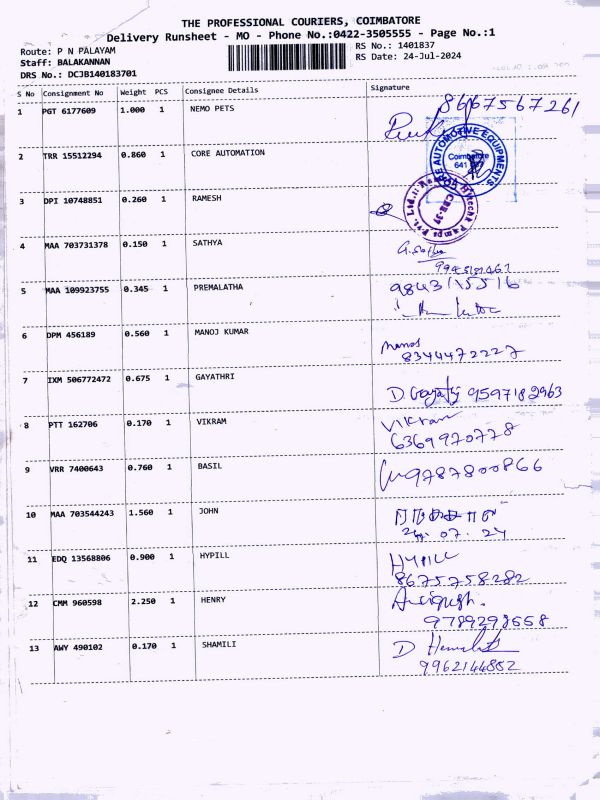 THE PROFESSIONAL COURIERS, COIMBATORE
Delivery Runsheet - MO - Phone No.:0422-3505555 - Page No.:1
Route: P N PALAYAM
RS No.: 1401837
Staff: BALAKANNAN
RS Date: 24-Jul-2024
DRS No.: DCJB140183701
S No Consignment No Weight PCS Consignee Details Signature
1 PGT 6177609 1.000 1 NEMO PETS 8667567261
2 TRR 15512294 0.860 1 CORE AUTOMATION
AUTOMOTIVE EQUIPMENTS
Coimbatore
641
3 DPI 10748851 0.260 1 RAMESH
Pumps Pvt. Ltd.
CBE-37
4 MAA 703731378 0.150 1 SATHYA G. Sathya
5 MAA 109923755 0.345 1 PREMALATHA 9843115516
6 DPM 456189 0.560 1 MANOJ KUMAR Manoj
8344472227
7 IXM 506772472 0.675 1 GAYATHRI D Gayatri 9597182963
8 PTT 162706 0.170 1 VIKRAM Vikram
6369970778
9 VRR 7400643 0.760 1 BASIL 9787800866
10 MAA 703544243 1.560 1 JOHN
24. 07. 24
11 EDQ 13568806 0.900 1 HYPILL HYPILL
8675758282
12 CMM 960598 2.250 1 HENRY
9789298558
13 AWY 490102 0.170 1 SHAMILI D
9962144852